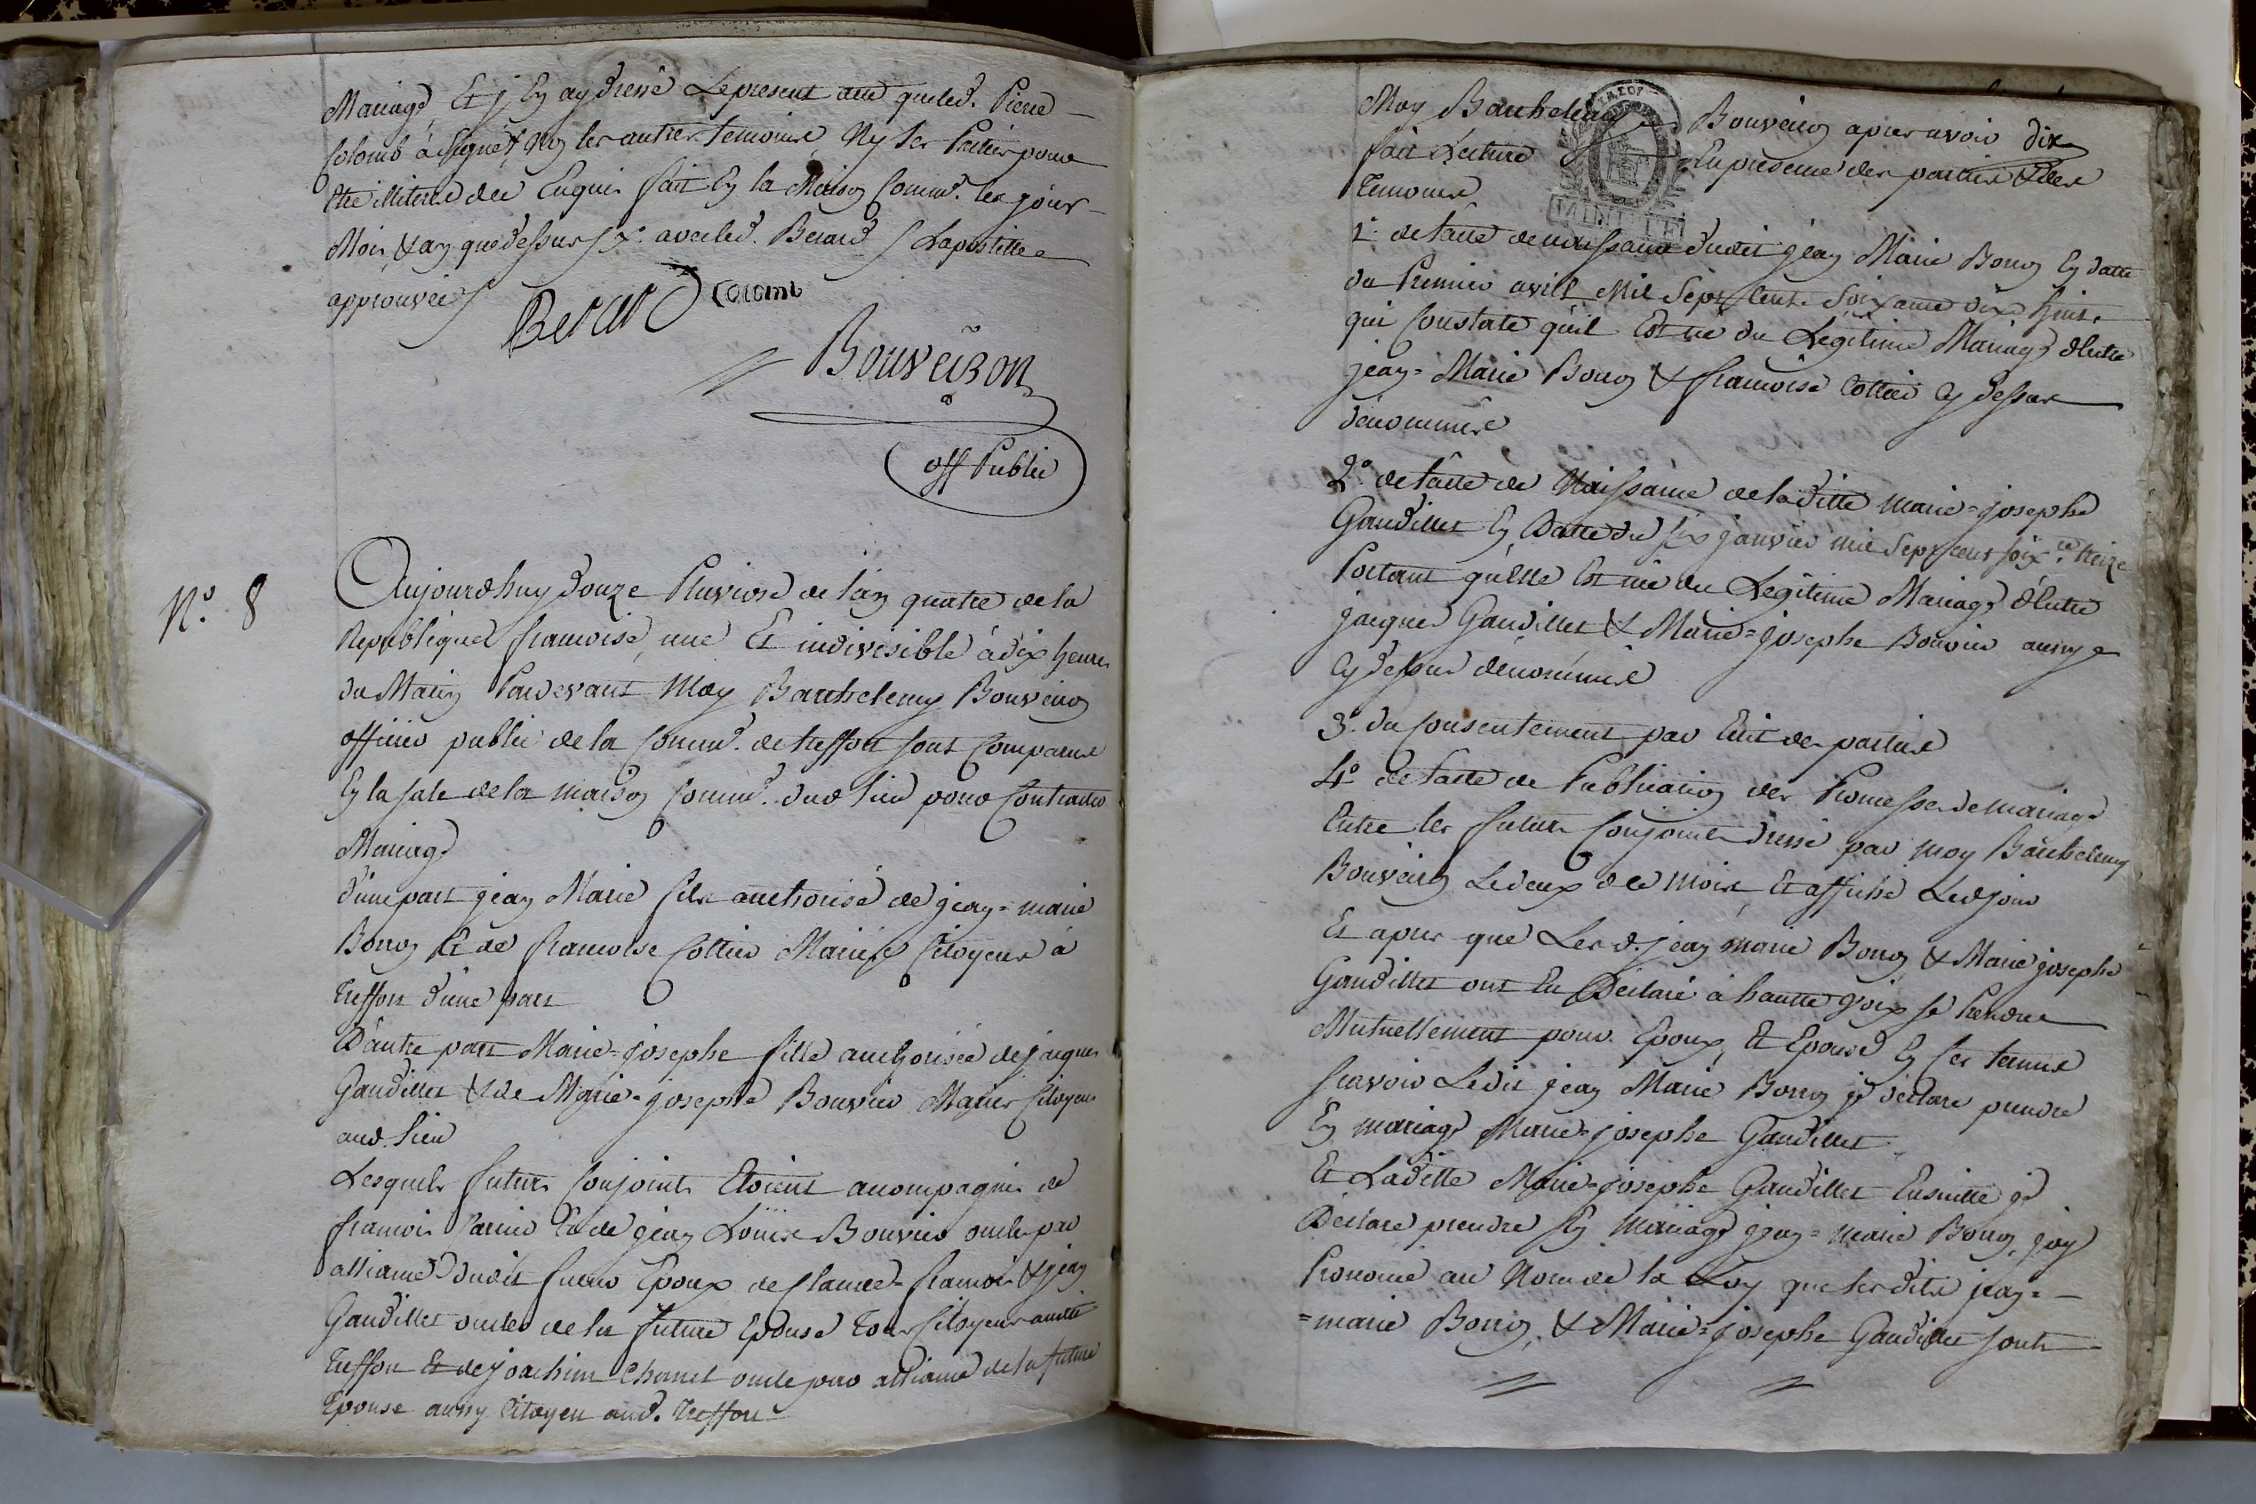 Mariage, Et j'En ay dressé Le present acte que led. Pierre
Colomb à signé, Non les autres temoins Ny les Parties pour
Etre illiterés de ce Enquis fait En la Maison Commne. les jour
Mois, & an que dessus s. avec led. Berard / Lapostille
approuvée /
Berard Colomb
Bouveiron
off Public
N.o 8
Aujourdhuy douze Pluviose de l'an quatre de la
Republique francoise, une Et indivisible à dix heures
du Matin Pardevant Moy Barthelemy Bouveiron
officier public de la Commne. de treffort sont Comparus
En la sale de la maison Commne. dud. lieu pour Contracter
Mariage
d'une part jean Marie fils authorisé de jean=marie
Bonon Et de francoise Cottier Mariés Citoyens à
treffort d'une part
D'autre part Marie=josephe fille authorisée de jacques
Gaudillet & de Marie=josephe Bouvier Mariés Citoyens
aud. lieu
Lesquels futurs Conjoints Etoient acompagnés de
francois Et de jean Louis Bouvier oncle par
alliance dudit futur Epoux de Claude=francois & jean
Gaudillet oncles de la future Epouse tous Citoyens audit
treffort Et de joachim Chanel oncle par alliance de la future
Epouse aussy Citoyen aud. treffort
Moy Barthelemy Bouveiron apres avoir
dix
fait Lecture En presence des parties & des
temoins
1.o de l'acte de naissance dudit jean Marie Bonon En date
du Premier avril Mil Sept Cent Soixante dix huit
qui Constate qu'il Est né du Legitime Mariage d'Entre
jean=Marie Bonon & francoise Cottier Cy dessus
dénommés
2.o de l'acte de Naissance de la ditte marie=josephe
Gaudillet En Datte du six janvier mil sept cent soixte. treize
Portant qu'Elle Est née du Legitime Mariage d'Entre
jacques Gaudillet & Marie=josephe Bouvier aussy
Cy dessus dénommés
3.o du Consentement par Ecrit des parties
4.o de l'acte de Publication des Promesses de mariage
Entre les futurs Conjoints dressé par moy Barthelemy
Bouveiron Le deux de ce mois, Et affiché Led. jour
Et apres que Lesd. jean marie Bonon & Marie josephe
Gaudillet ont Eu Déclaré à hautte voix se Prendre
Mutuellement pour Epoux, Et Epouse En ces termes
scavoir Ledit jean Marie Bonon je declare prendre
En mariage Marie=josephe Gaudillet
Et Laditte Marie=josephe Gaudillet Ensuitte je
Déclare prendre En Mariage jean=marie Bonon, j'ay
Prononcé au Nom de la Loy que les dits jean=
=marie Bonon, & Marie=josephe Gaudillet sont